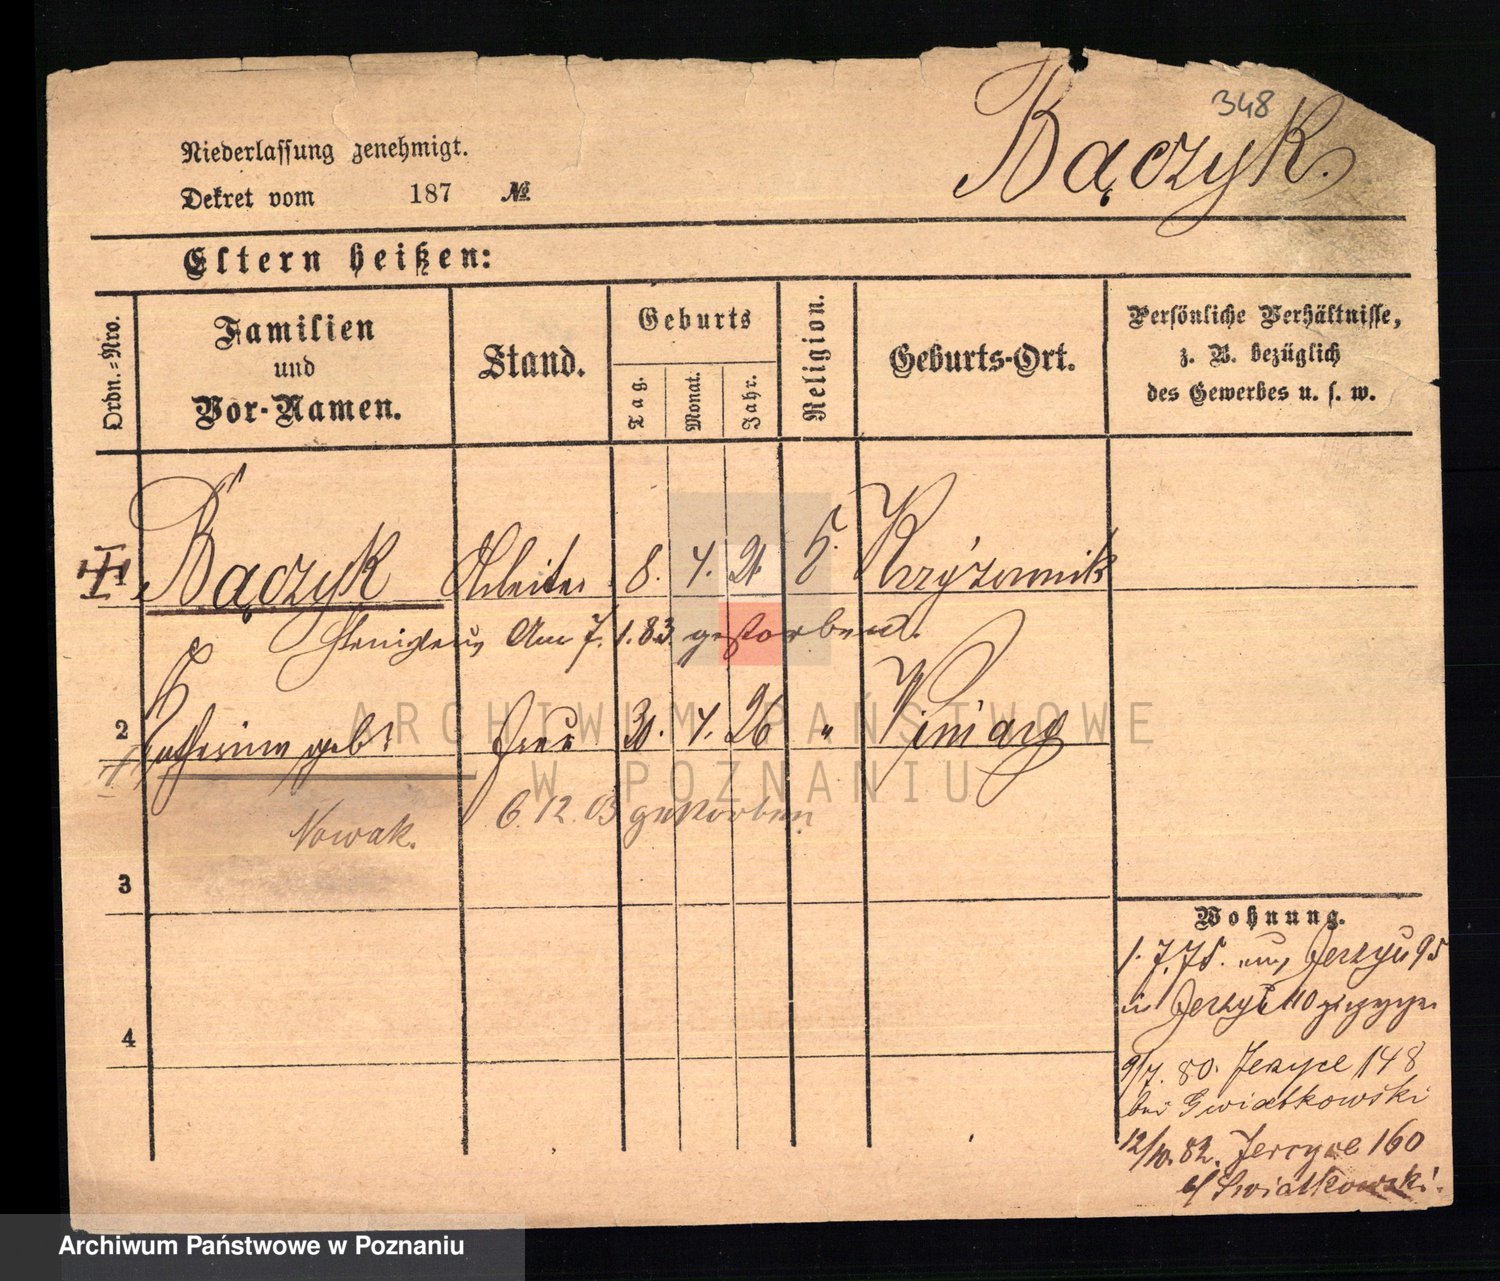 348
Bączyk.
Niederlassung genehmigt.
Dekret vom 187 №
Eltern heißen:
Ordn.=Nro.
Familien
und
Vor-Namen.
Stand.
Geburts
Tag.
Monat.
Jahr.
Religion.
Geburts-Ort.
Persönliche Verhältnisse,
z. B. bezüglich
des Gewerbes u. s. w.
1 Bączyk Arbeiter 8. 4. 21.
Stanislaus Am 7.1.83 gestorben.
2 Catharina geb. Frau 30. 4. 26 " Winiary
Nowak. 6.12.03 gestorben
3
4
Wohnung.
1.7.75. aus Jerzyce 95
in Jerzyce 110 gezogen
9/7. 80. Jerzyce 148
bei Gwiatkowski
12/10.82. Jerzyce 160
b/ Swiatkowski.
ARCHIWUM PAŃSTWOWE
W POZNANIU
Archiwum Państwowe w Poznaniu